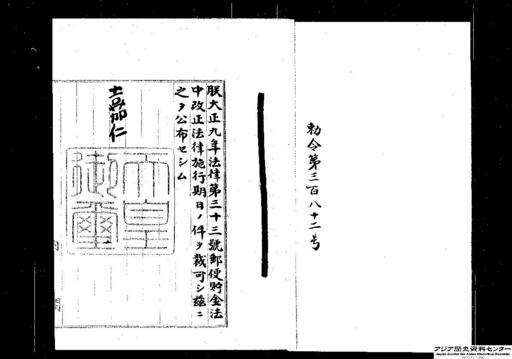 勅令第三百八十二号
朕大正九年法律第三十三號郵便貯金法
中改正法律施行期日ノ件ヲ裁可シ茲ニ
之ヲ公布セシム
嘉仁
天皇
御璽
アジア歴史資料センター
Japan Center for Asian Historical Records